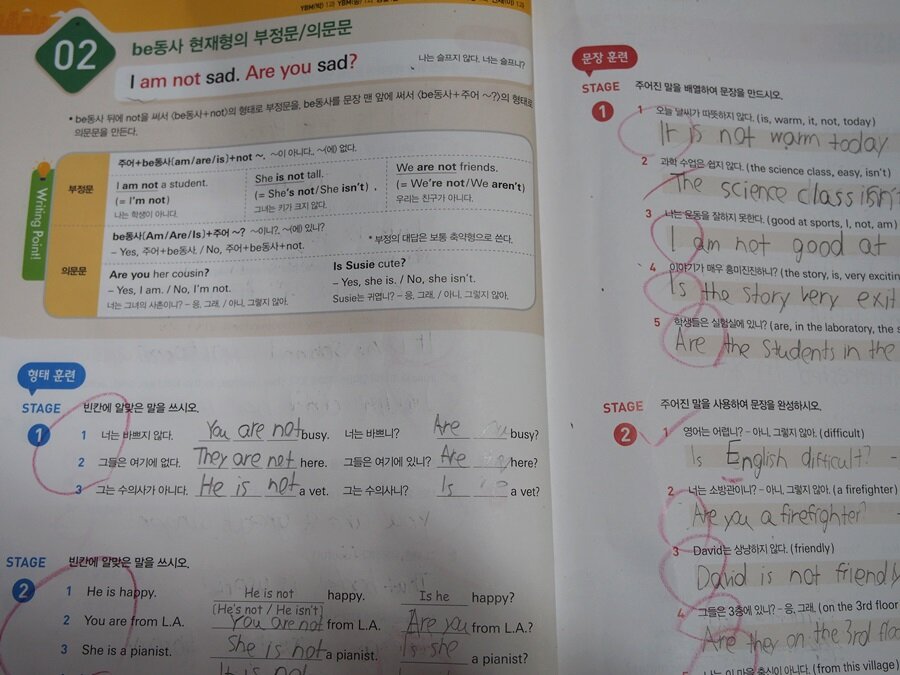 YBM(박) 1과 YBM(송) 1과
02
be동사 현재형의 부정문/의문문
I am not sad. Are you sad?
나는 슬프지 않다. 너는 슬프니?
• be동사 뒤에 not을 써서 〈be동사+not〉의 형태로 부정문을, be동사를 문장 맨 앞에 써서 〈be동사+주어 ~?〉의 형태로
의문문을 만든다.
Writing Point!
부정문
주어+be동사(am/are/is)+not ~. ~이 아니다, ~(에) 없다.
I am not a student.
(= I'm not)
나는 학생이 아니다.
She is not tall.
(= She's not/She isn't)
그녀는 키가 크지 않다.
We are not friends.
(= We're not/We aren't)
우리는 친구가 아니다.
의문문
be동사(Am/Are/Is)+주어 ~? ~이니?, ~(에) 있니?
– Yes, 주어+be동사. / No, 주어+be동사+not.
* 부정의 대답은 보통 축약형으로 쓴다.
Are you her cousin?
– Yes, I am. / No, I'm not.
너는 그녀의 사촌이니? – 응, 그래. / 아니, 그렇지 않아.
Is Susie cute?
– Yes, she is. / No, she isn't.
Susie는 귀엽니? – 응, 그래. / 아니, 그렇지 않아.
형태 훈련
STAGE 1 빈칸에 알맞은 말을 쓰시오.
1 너는 바쁘지 않다. You are not busy. 너는 바쁘니? Are busy?
2 그들은 여기에 없다. They are not here. 그들은 여기에 있니? Are here?
3 그는 수의사가 아니다. He is not a vet. 그는 수의사니? Is a vet?
STAGE 2 빈칸에 알맞은 말을 쓰시오.
1 He is happy. He is not happy. Is he happy?
(He's not / He isn't)
2 You are from L.A. You are not from L.A. Are you from L.A.?
3 She is a pianist. She is not a pianist. Is she a pianist?
It is not
문장 훈련
STAGE 1 주어진 말을 배열하여 문장을 만드시오.
1 오늘 날씨가 따뜻하지 않다. (is, warm, it, not, today)
It is not warm today
2 과학 수업은 쉽지 않다. (the science class, easy, isn't)
The science class isn't
3 나는 운동을 잘하지 못한다. (good at sports, I, not, am)
I am not good at
4 이야기가 매우 흥미진진하니? (the story, is, very
Is the story very exit
5 학생들은 실험실에 있니? (are, in the laboratory, the
Are the students in the
STAGE 2 주어진 말을 사용하여 문장을 완성하시오.
1 영어는 어렵니? – 아니, 그렇지 않아. (difficult)
Is English difficult? –
2 너는 소방관이니? – 아니, 그렇지 않아. (a firefighter)
Are you a firefighter?
3 David는 상냥하지 않다. (friendly)
David is not friendly
4 그들은 3층에 있니? – 응, 그래. (on the 3rd floor
Are they on the 3rd floo
(from this village)